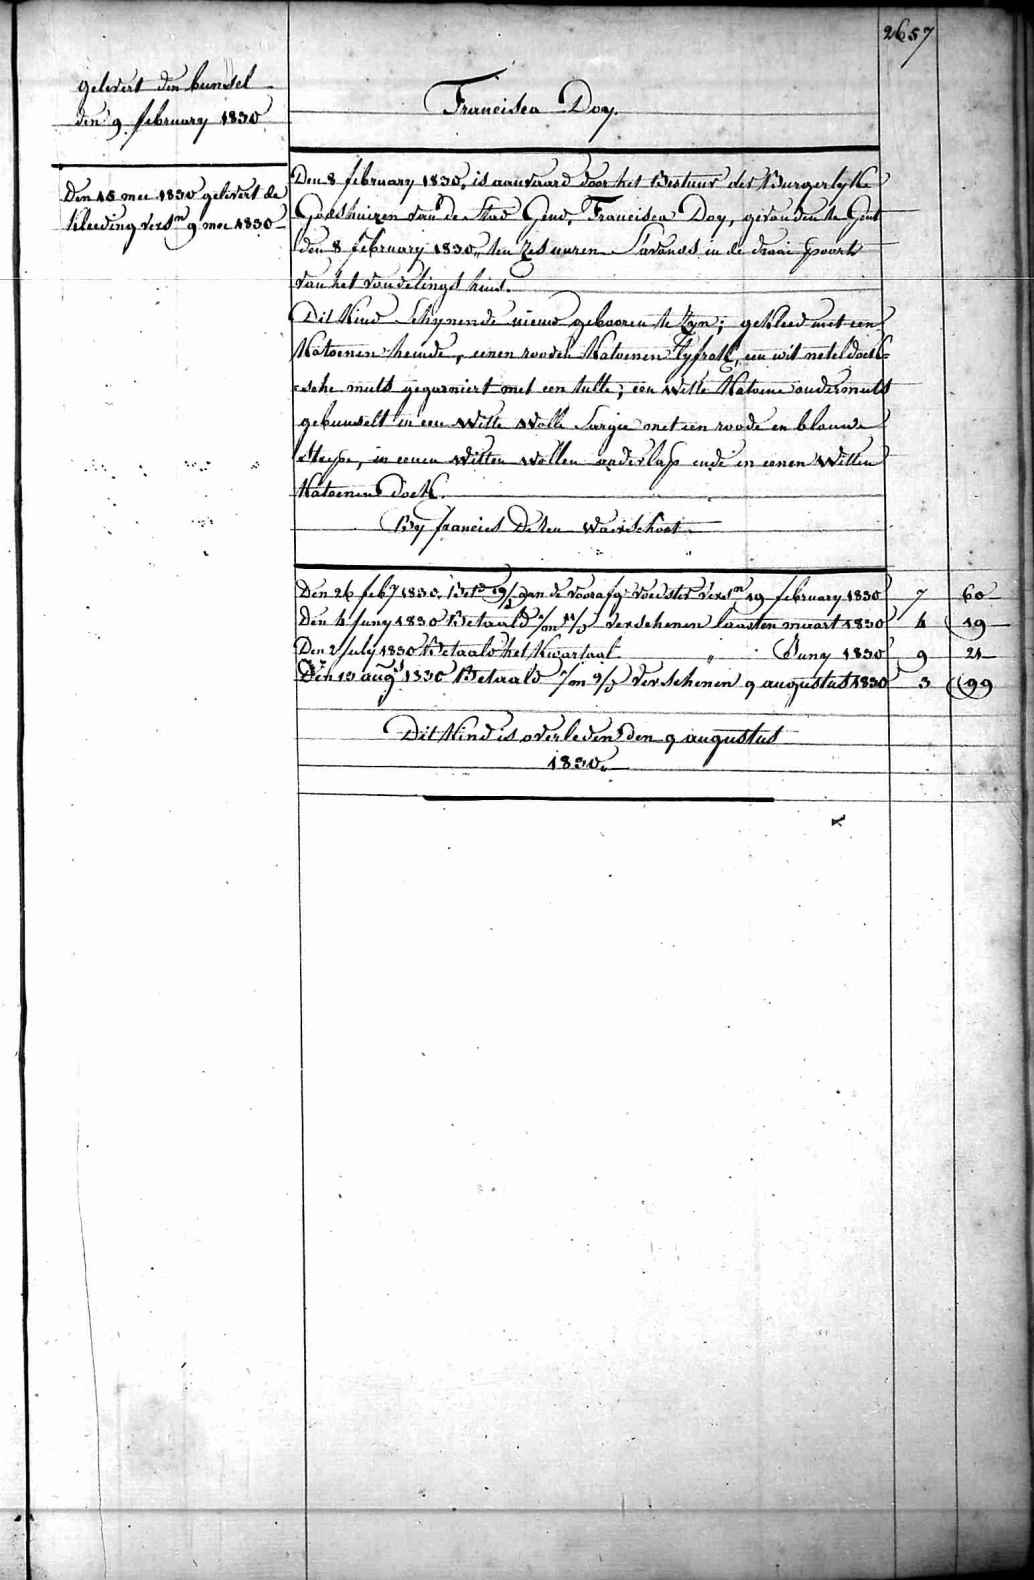 2657
gelevert den bunssel
den 9 february 1830
Francisca Doy.
Den 15 mee 1830 gelevert de
kleeding versn 9 mee 1830
Den 8 february 1830, is aanvaard door het Bestuur der Burgerlyke
Godshuizen van de Stad Gend, Francisca Doy, gevonden te Gent
den 8 february 1830, ten zes uuren s'avonds in de draai poorte
van het vondelings huis.
Dit Kind schynende nieuw gebooren te zyn; gekleed met een
Katoenen hemde, eenen rooden Katoenen lyfrok, een wit neteldoek=
=sche muts gegarniert met een tulle; een witte Katoene ondermuts
gebunselt in een witte wolle Sargie met een roode en blauwe
streepe, in eenen witten wollen onderlap ende in eenen witten
Katoenen Doek.
By francies De ten Waerschoot
Den 26 feby 1830. Betd 19/3 aan de voorafg. voedster versn 19 february 1830 7 60
Den 4 Juny 1830 Betaald 1/m 11/3 verschenen laasten maart 1830 4 19
Den 2 July 1830 Betaald het Kwartaal " Juny 1830 9 21
Den 13 augt 1830 Betaald 1/m 9/3 verschenen 9 augustus 1830 3 99
Dit Kind is overleden den 9 augustus
1830.